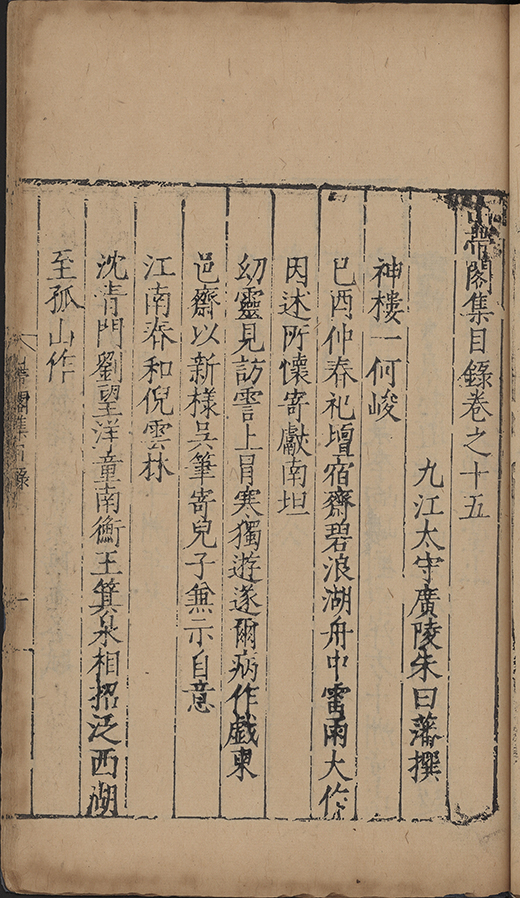 山帶閣集目錄卷之十五
九江太守廣陵朱曰藩撰
神樓一何峻
己酉仲春祀壇宿齋碧浪湖舟中雷雨大作
因述所懷寄獻南坦
幼靈見訪霅上冒寒獨遊遂爾病作戲柬
邑齋以新樣吳筆寄兒子無示自意
江南春和倪雲林
沈青門劉望洋童南衡王箕泉相招泛西湖
至孤山作
山帶閣集目錄
一